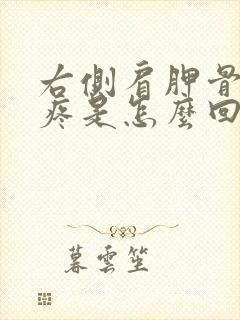 右側肩胛骨
疼是怎麼回
暮雲笙